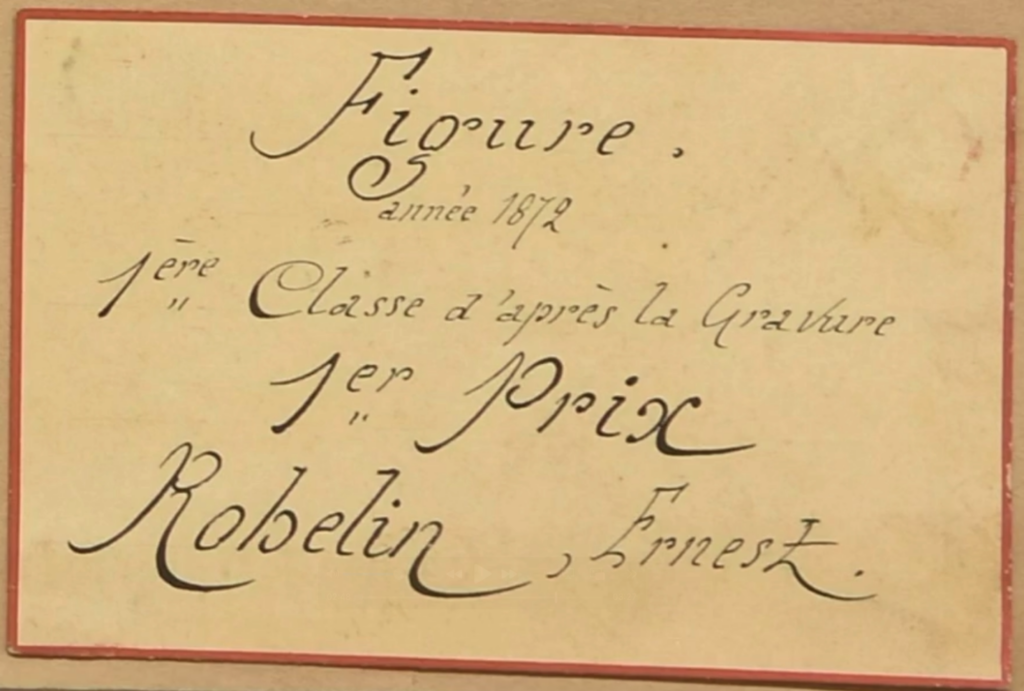 Figure.
année 1872
1ère Classe d'après la Gravure
1er Prix
Robelin, Ernest.